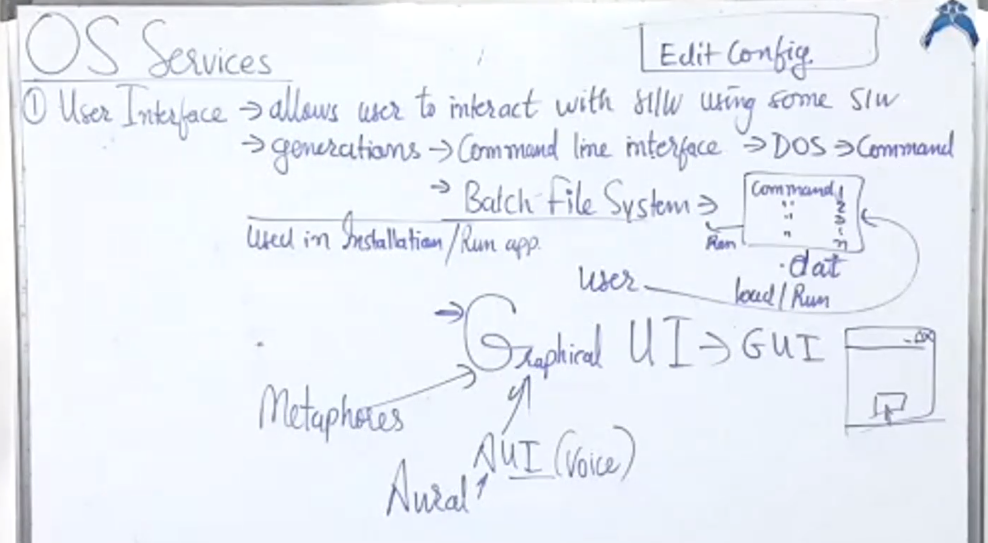 OS Services
Edit Config.
① User Interface → allows user to interact with H/W using some S/W
→ generations → Command line interface → DOS → Command
→ Batch file System →
Command 1
" 2
" 3
" n
Used in Installation/Run app.
Run
.dat
User
load/Run
→ Graphical UI → GUI
Metaphores
AUI (Voice)
Aural